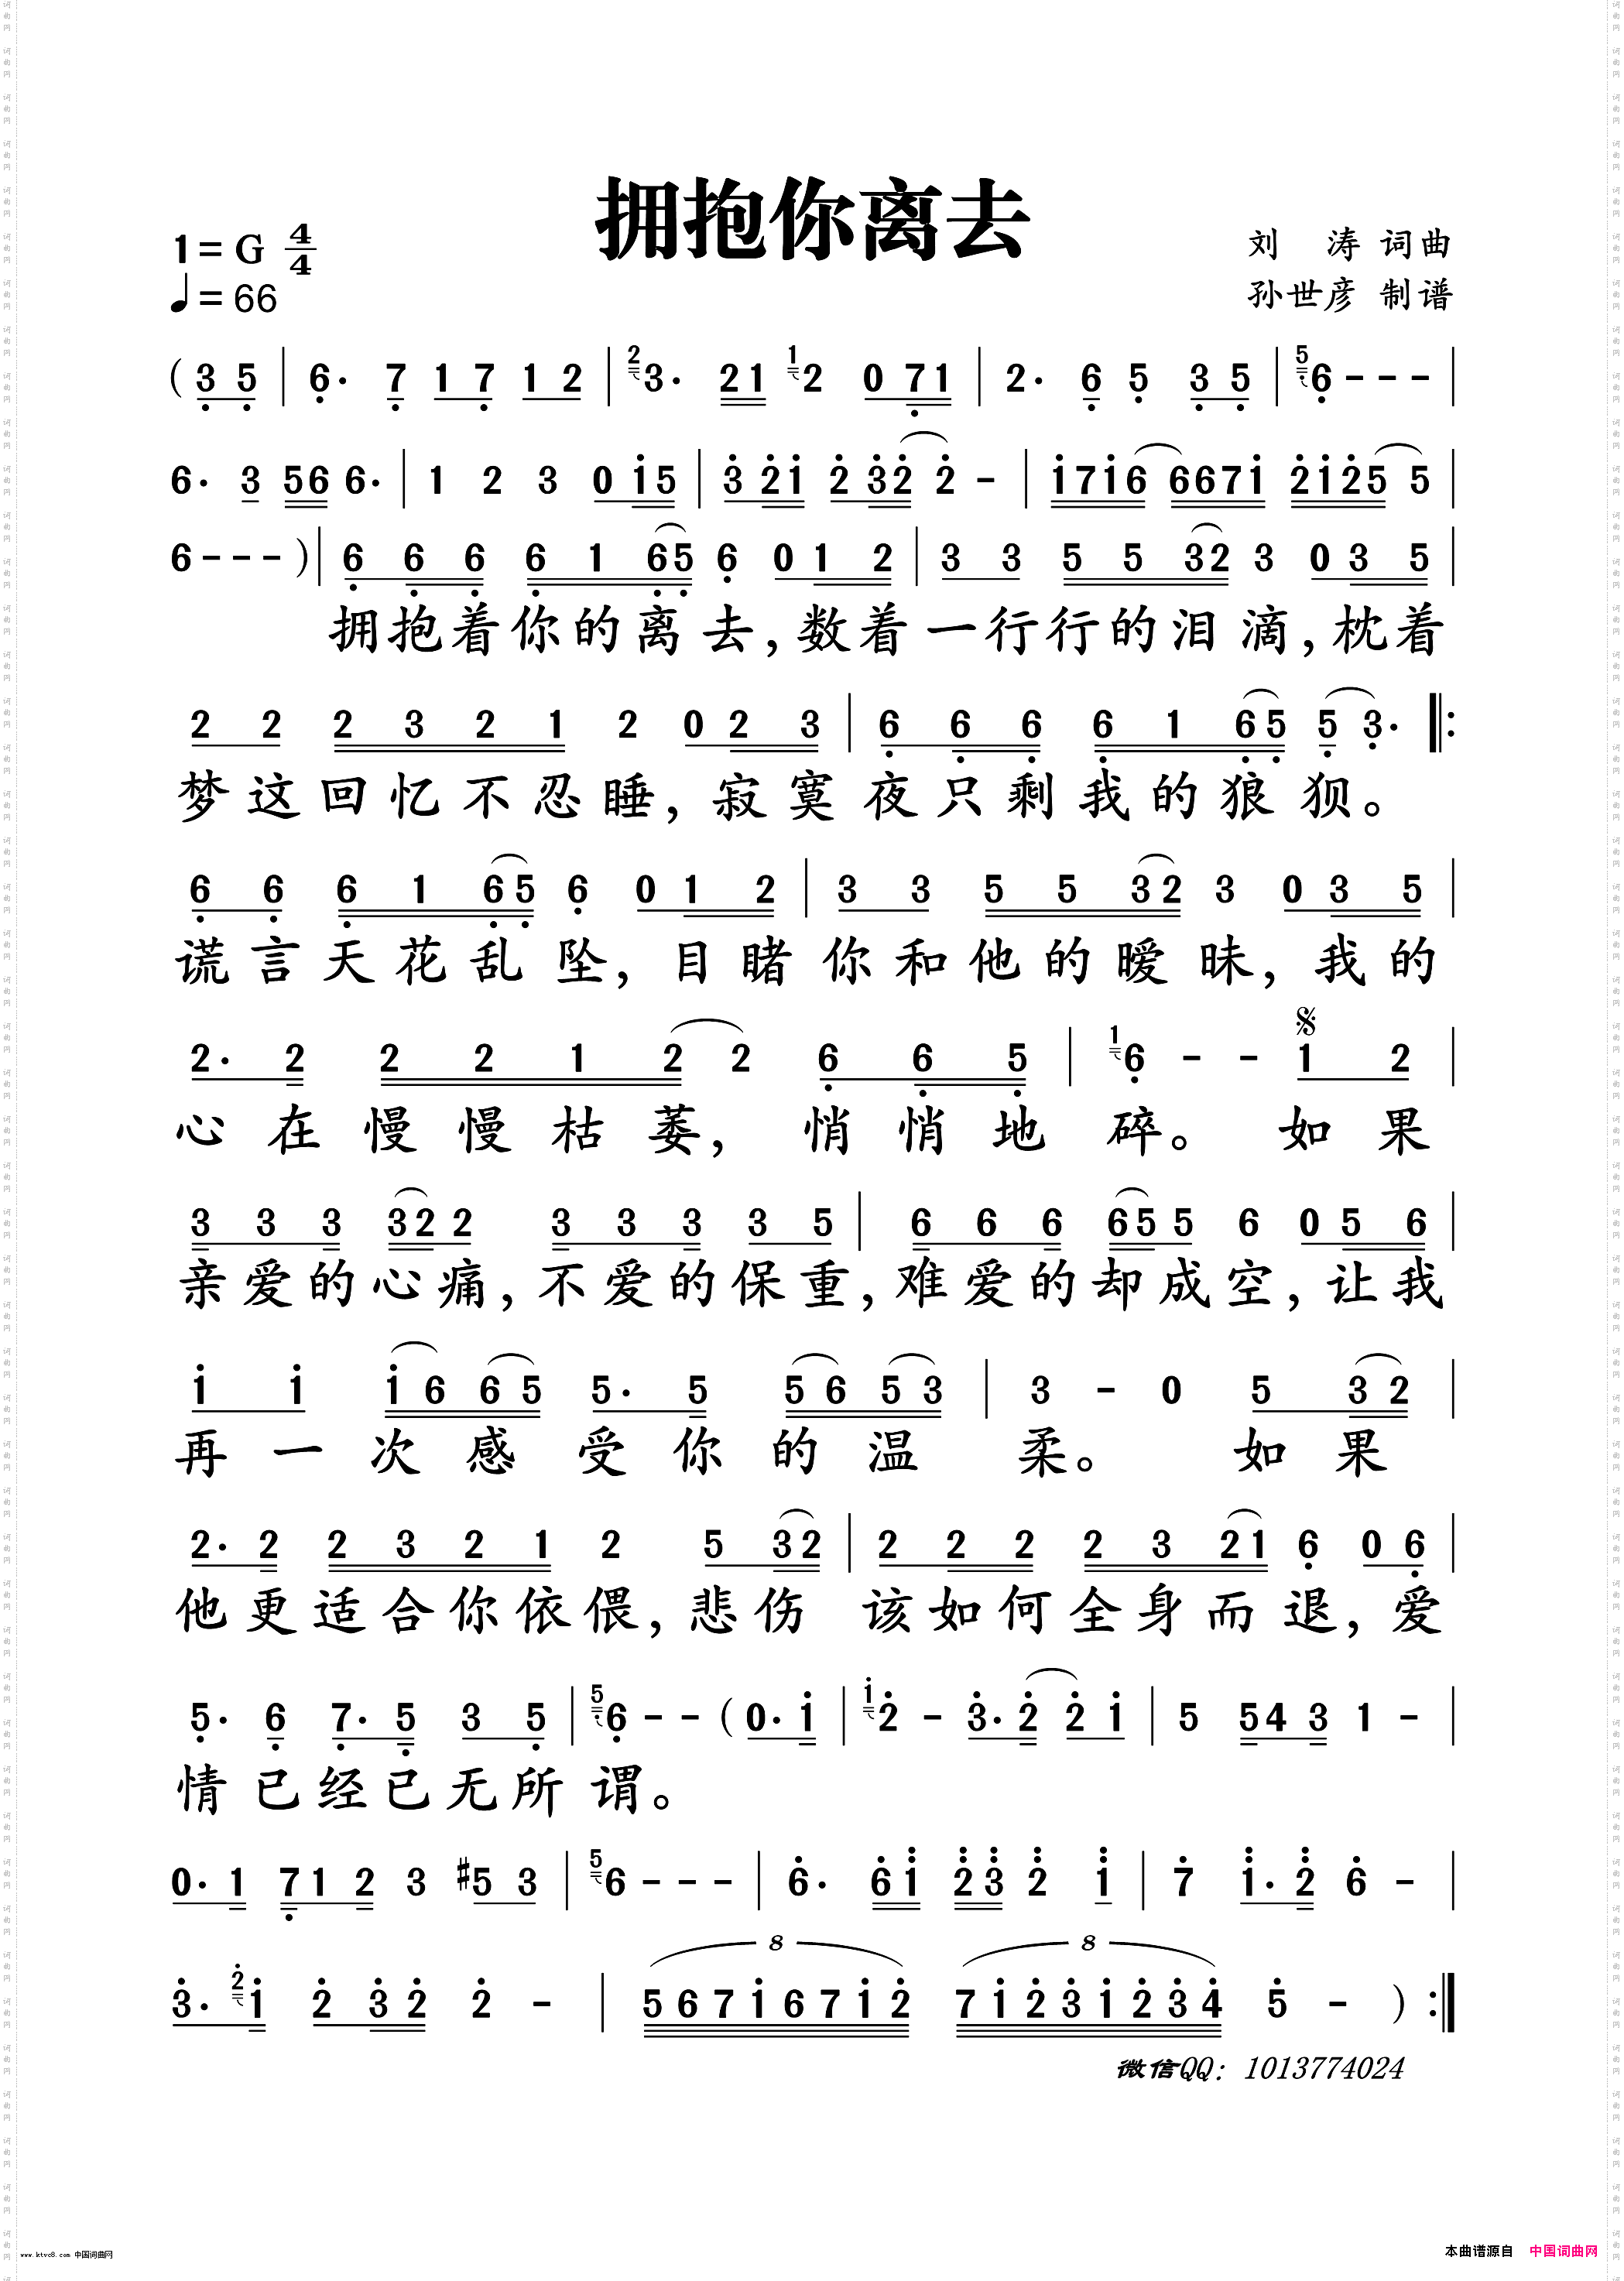 拥抱你离去
1=G 4/4
刘 涛 词曲
♩=66
孙世彦 制谱
( 3 5 | 6· 7 1 7 1 2 | 2 3· 2 1 1 2 0 7 1 | 2· 6 5 3 5 | 5 6 - - - |
6· 3 5 6 6· | 1 2 3 0 1 5 | 3 2 1 2 3 2 2 - | 1 7 1 6 6 6 7 1 2 1 2 5 5 |
6 - - - ) | 6 6 6 6 1 6 5 6 0 1 2 | 3 3 5 5 3 2 3 0 3 5 |
拥抱着你的离去,数着一行行的泪滴,枕着
2 2 2 3 2 1 2 0 2 3 | 6 6 6 6 1 6 5 5 3· ‖:
梦这回忆不忍睡,寂寞夜只剩我的狼狈。
6 6 6 1 6 5 6 0 1 2 | 3 3 5 5 3 2 3 0 3 5 |
谎言天花乱坠,目睹你和他的暧昧,我的
2· 2 2 2 1 2 2 6 6 5 | 1 6 - - 1 2 |
心在慢慢枯萎,悄悄地碎。如果
3 3 3 3 2 2 3 3 3 3 5 | 6 6 6 6 5 5 6 0 5 6 |
亲爱的心痛,不爱的保重,难爱的却成空,让我
1 1 1 6 6 5 5· 5 5 6 5 3 | 3 - 0 5 3 2 |
再一次感受你的温柔。如果
2· 2 2 3 2 1 2 5 3 2 | 2 2 2 2 3 2 1 6 0 6 |
他更适合你依偎,悲伤 该如何全身而退,爱
5· 6 7· 5 3 5 | 5 6 - - ( 0· 1 | 1 2 - 3· 2 2 1 | 5 5 4 3 1 - |
情已经已无所谓。
0· 1 7 1 2 3 #5 3 | 5 6 - - - | 6· 6 1 2 3 2 1 | 7 1· 2 6 - |
3· 2 1 2 3 2 2 - | 8 5 6 7 1 6 7 1 2 8 7 1 2 3 1 2 3 4 5 - ) :‖
微信QQ: 1013774024
www.ktvc8.com 中国词曲网
本曲谱源自 中国词曲网